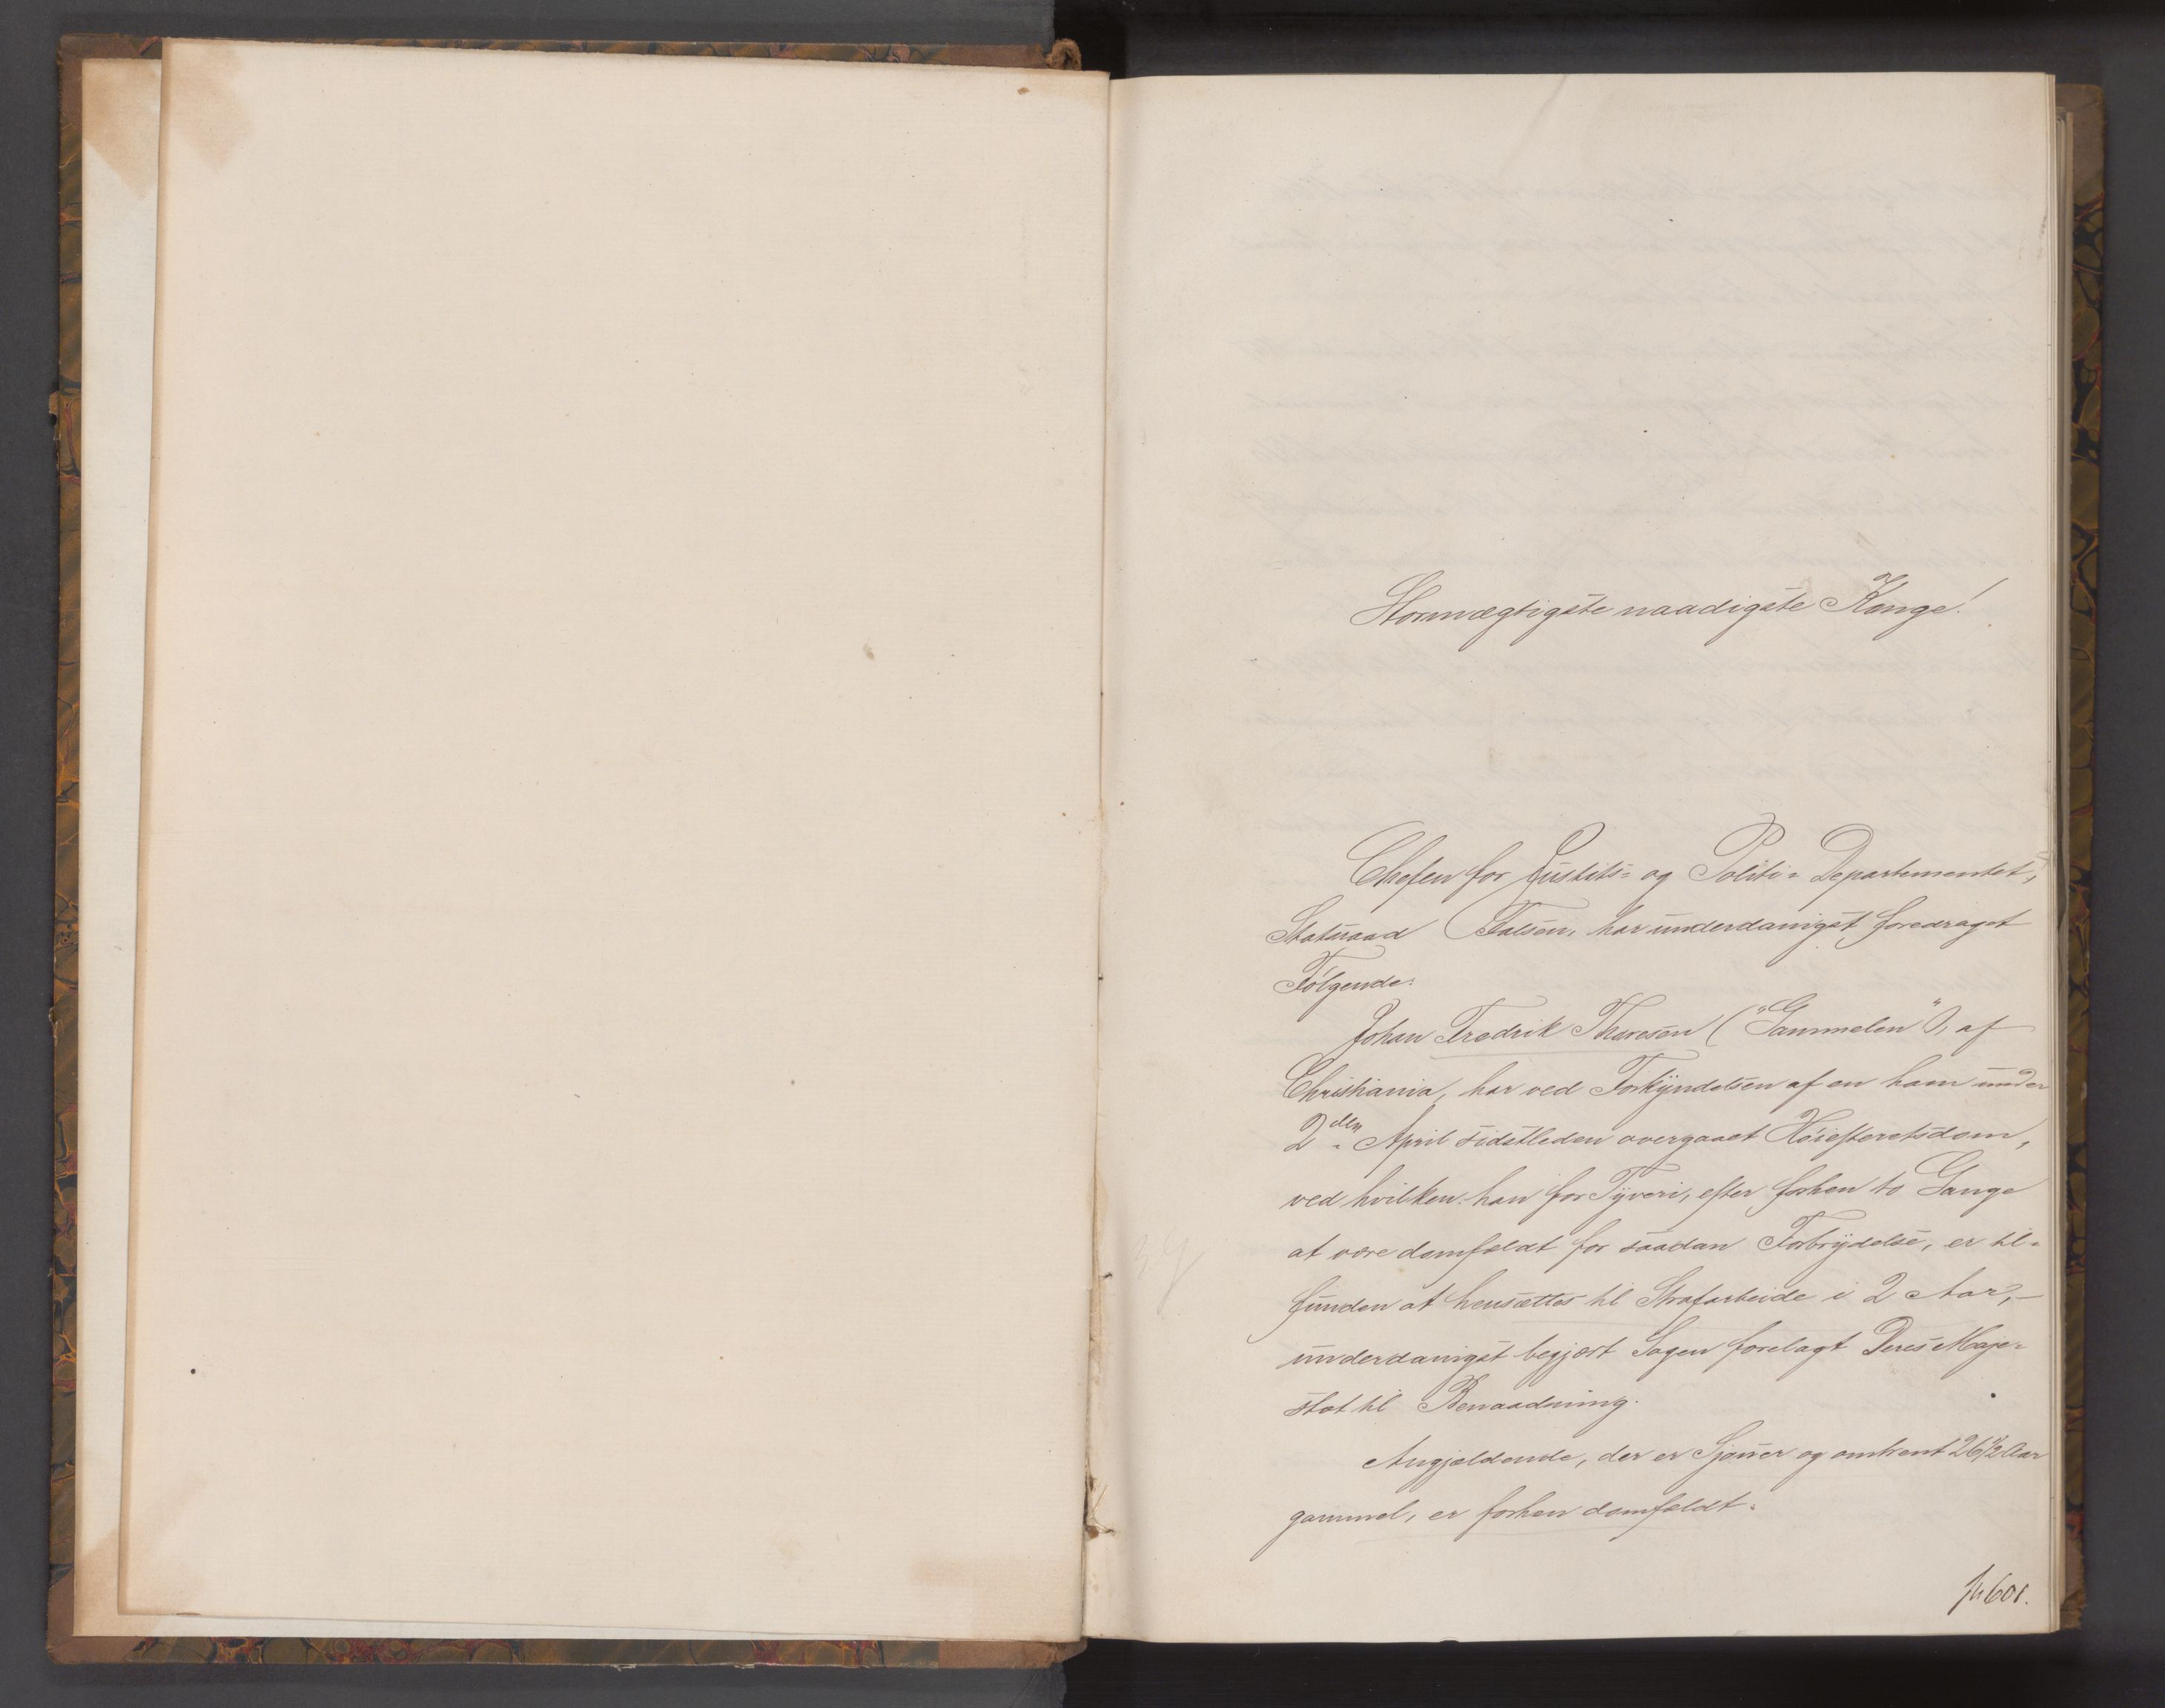 Stormægtigste naadigste Konge!
Chefen for Justits- og Politi-Departementet,
Statsraad Falsen, har underdanigst foredraget
Følgende:
Johan Fredrik Theresen („Gammelen“), af
Christiania, har ved Forkyndelsen af en ham under
2den April sidstleden overgaaet Høiesteretsdom,
ved hvilken han for Tyveri, efter forhen to Gange
at være domfældt for saadan Forbrydelse, er til-
funden at hensættes til Strafarbeide i 2 Aar,-
underdanigst begjært Sagen forelagt Deres Maje-
stæt til Benaadning.
Angjældende, der er Sjouer og omtrent 26 1/2 Aar
gammel, er forhen domfældt: